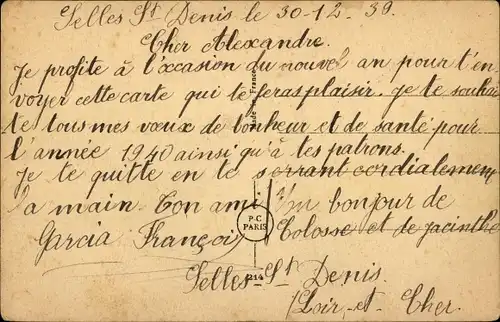 Selles St Denis le 30-12.39
Cher Alexandre.
Je profite à l'occasion du nouvel an pour t'en
voyer cette carte qui te feras plaisir. je te souhai
te tous mes vœux de bonheur et de santé pour
l'année 1940 ainsi qu'à tes patrons.
Je te quitte en te serrant cordialement
la main. Ton ami. Un bonjour de
Garcia François Colosse et de jacinthe
Selles-St Denis.
Loir-et-Cher
P-C
PARIS
Made in France